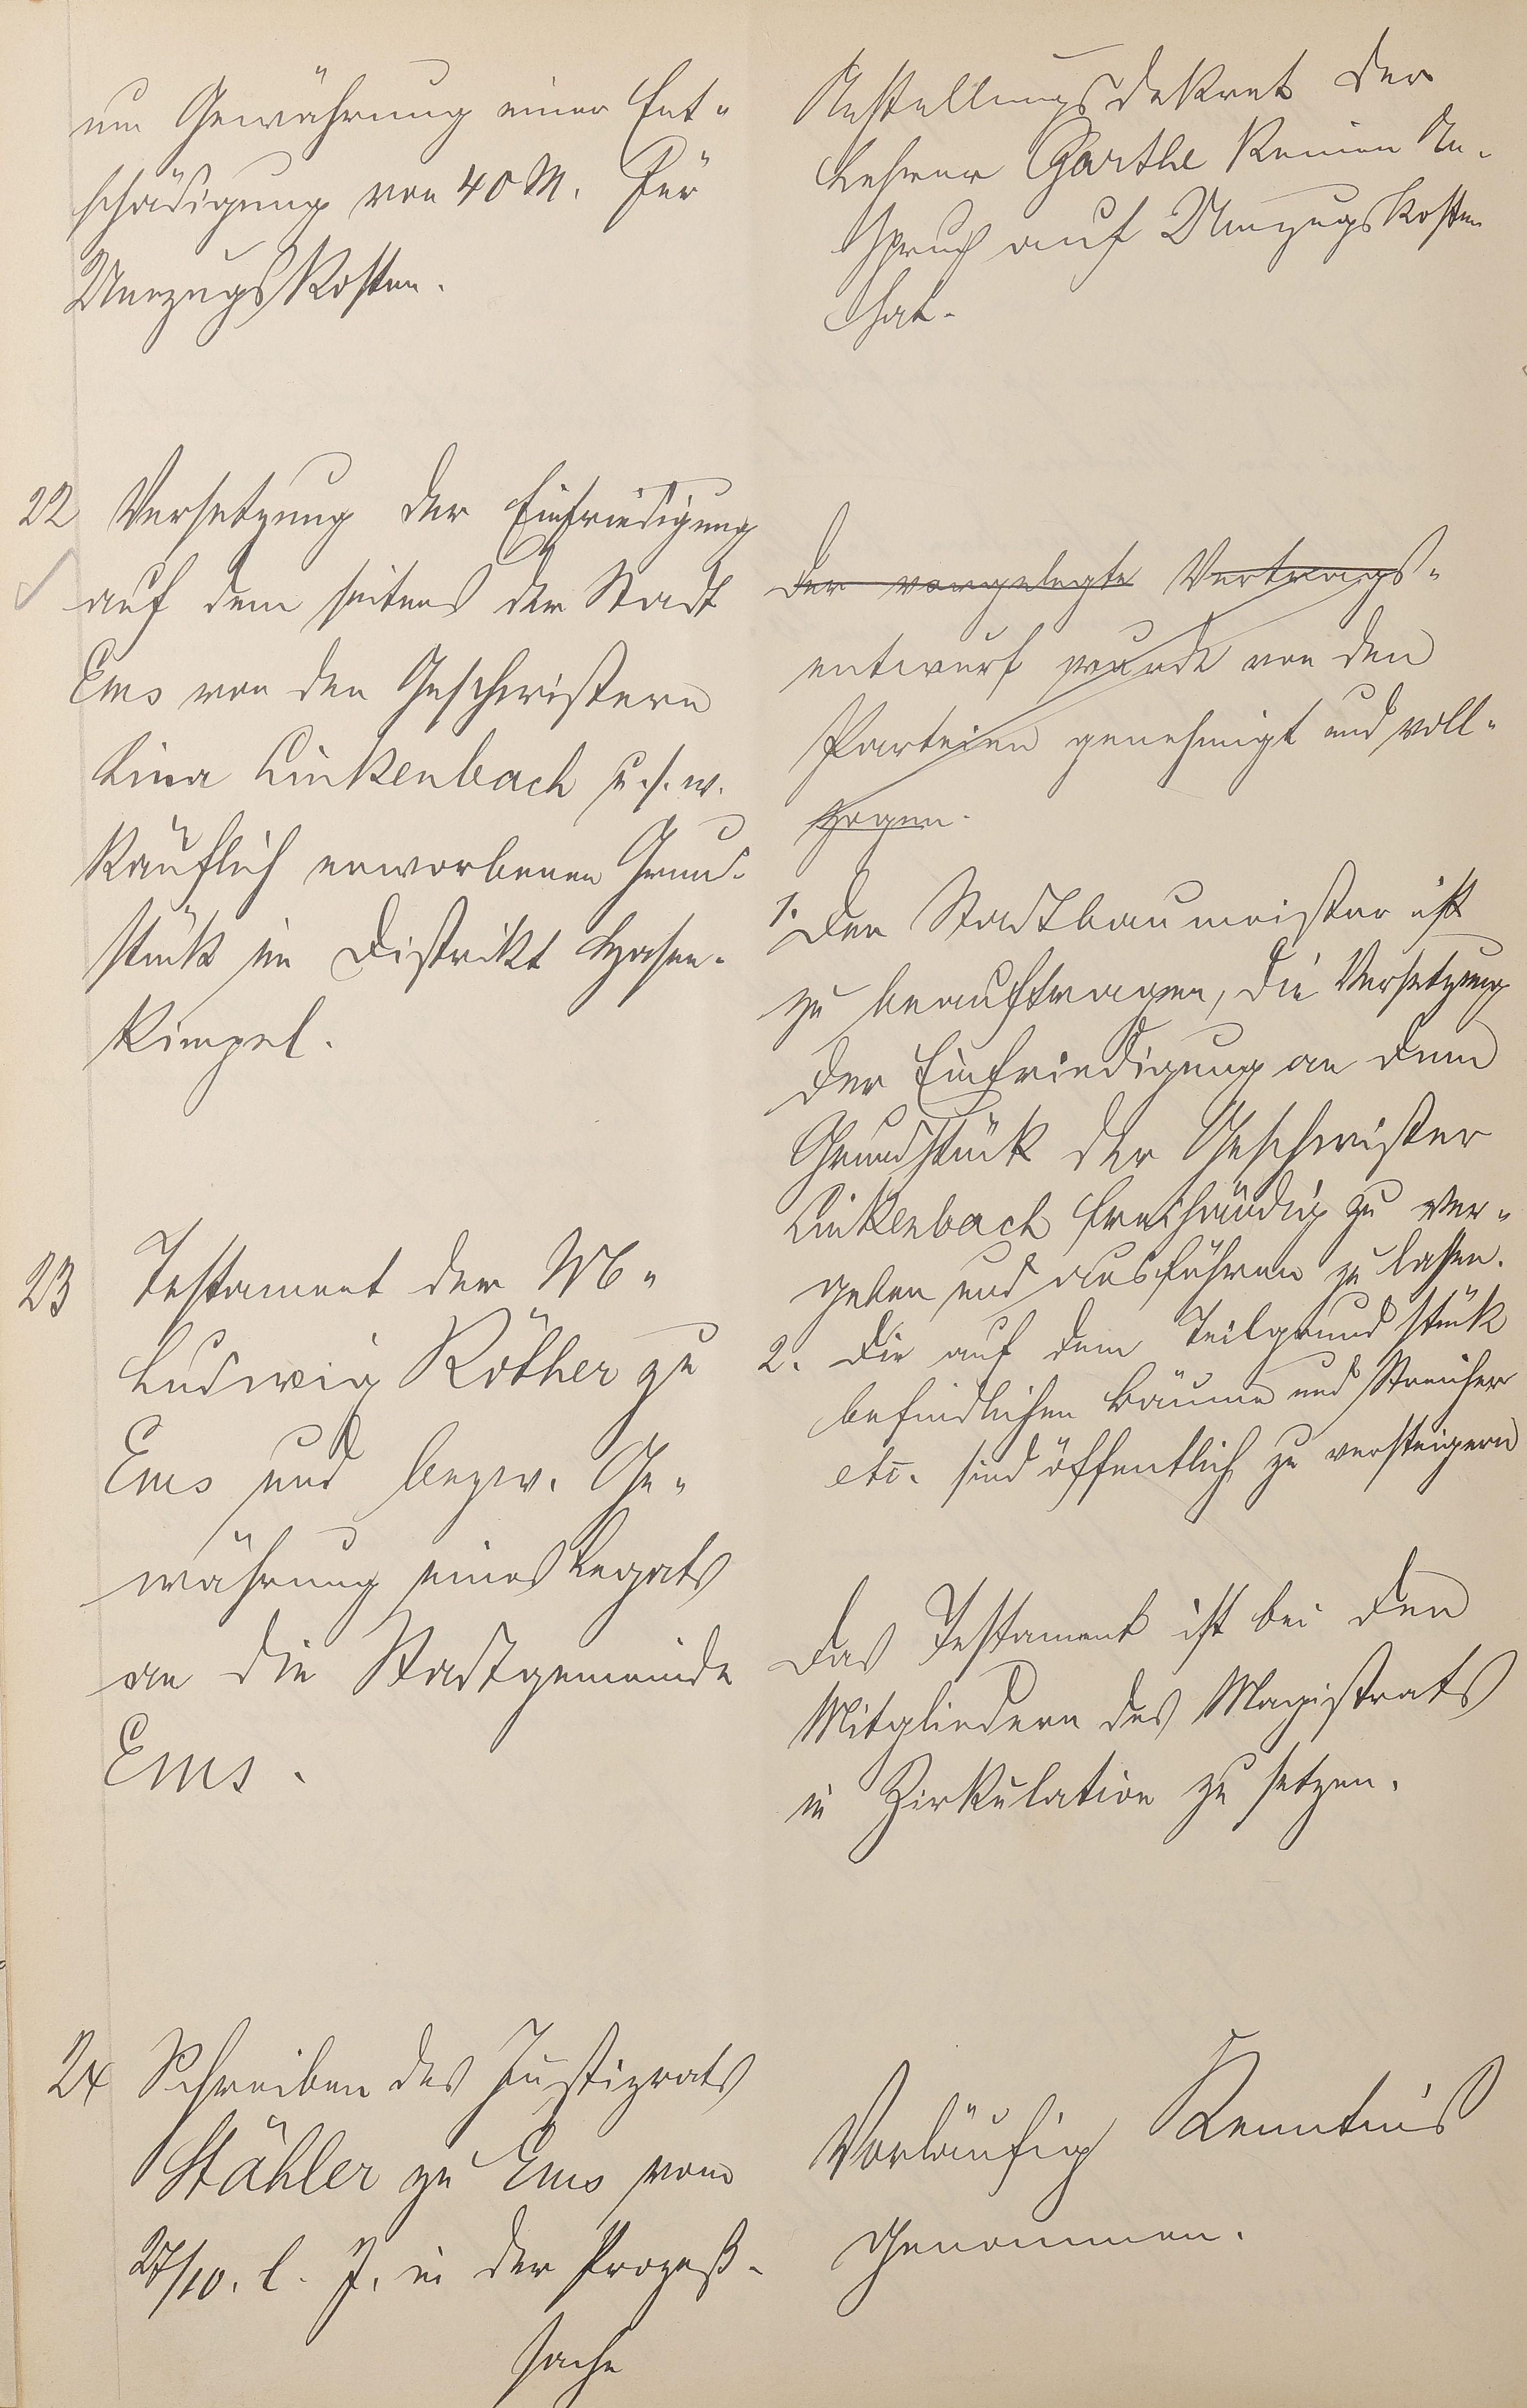 um Gewährung einer Ent-
schädigung von 40 M. für
Umzugskosten.
Anstellungsdekret der
Lehrer Garthe keinen An-
spruch auf Umzugskosten
hat.
22 Versetzung der Einfriedigung
auf dem seitens der Stadt
Ems von den Geschwistern
Lina Linkenbach u.s.w.
käuflich erworbenen Grund-
stück im Distrikt Hasen-
kimpel.
Der vorgelegte Vertrags-
entwurf wurde von den
Parteien genehmigt und voll-
zogen.
1. Der Stadtbaumeister ist
zu beauftragen, die Versetzung
der Einfriedigung an dem
Grundstück der Geschwister
Linkenbach freihändig zu ver-
geben und ausführen zu lassen.
2. Die auf dem Teilgrundstück
befindlichen Bäume und Sträucher
etc. sind öffentlich zu versteigern
23 Testament der
Ludwig Röther zu
Ems und bezw. Ge-
währung eines Legats
an die Stadtgemeinde
Ems.
Das Testament ist bei den
Mitgliedern des Magistrats
in Zirkulation zu setzen.
24 Schreiben des Justizrats
Stähler zu Ems vom
27/10. l. J. in der Prozeß-
sache
Vorläufig Kenntnis
genommen.